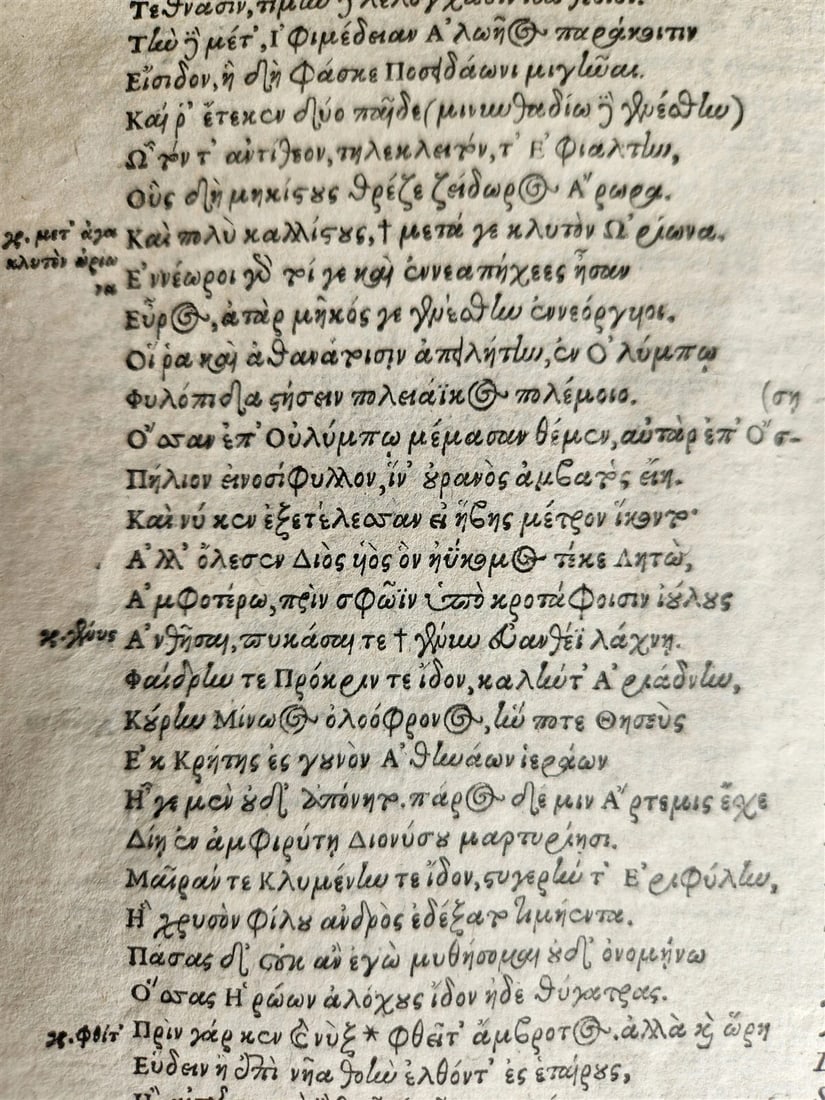 Τεθνᾶσιν, τιμὴν δὲ λελόγχασιν ἶσα θεοῖσιν.
Τὴν δὲ μέτ', Ἰφιμέδειαν Ἀλωῆος παράκοιτιν
Εἴσιδον, ἣ δὴ φάσκε Ποσειδάωνι μιγῆναι.
Καί ῥ' ἔτεκεν δύο παῖδε (μινυνθαδίω δὲ γενέσθην)
Ὦτόν τ' ἀντίθεον, τηλεκλειτόν, τ' Ἐφιάλτην,
Οὓς δὴ μηκίστους θρέψε ζείδωρος Ἄρουρα.
γρ. μετ' ἀγα Καὶ πολὺ καλλίστους, † μετά γε κλυτὸν Ὠρίωνα.
κλυτὸν ὠρίω
να Ἐννέωροι γὰρ τοί γε καὶ ἐννεαπήχεες ἦσαν
Εὖρος, ἀτὰρ μῆκός γε γενέσθην ἐννεόργυιοι.
Οἵ ῥα καὶ ἀθανάτοισιν ἀπειλήτην, ἐν Ὀλύμπῳ
Φυλόπιδα στήσειν πολυάϊκος πολέμοιο. (ση
Ὄσσαν ἐπ' Οὐλύμπῳ μέμασαν θέμεν, αὐτὰρ ἐπ' Ὄσ-
Πήλιον εἰνοσίφυλλον, ἵν' οὐρανὸς ἀμβατὸς εἴη.
Καὶ νύ κεν ἐξετέλεσσαν εἰ ἥβης μέτρον ἵκοντο·
Ἀλλ' ὄλεσεν Διὸς υἱὸς ὃν ἠΰκομος τέκε Λητὼ,
Ἀμφοτέρω, πρὶν σφῶϊν ὑπὸ κροτάφοισιν ἰούλους
γρ. γένυς Ἀνθῆσαι, πυκάσαι τε † γένυν εὐανθέϊ λάχνῃ.
Φαίδρην τε Πρόκριν τε ἴδον, καλήν τ' Ἀριάδνην,
Κούρην Μίνωος ὀλοόφρονος, ἥν ποτε Θησεὺς
Ἐκ Κρήτης ἐς γουνὸν Ἀθηνάων ἱεράων
Ἦγε μὲν οὐδ' ἀπόνητο. πάρος δέ μιν Ἄρτεμις ἔσχε
Δίῃ ἐν ἀμφιρύτῃ Διονύσου μαρτυρίῃσι.
Μαῖράν τε Κλυμένην τε ἴδον, στυγερήν τ' Ἐριφύλην,
Ἣ χρυσὸν φίλου ἀνδρὸς ἐδέξατο τιμήεντα.
Πάσας δ' οὐκ ἂν ἐγὼ μυθήσομαι οὐδ' ὀνομήνω
Ὅσσας Ἡρώων ἀλόχους ἴδον ἠδὲ θύγατρας.
γρ. φθίτ' Πρὶν γάρ κεν καὶ νὺξ * φθεῖτ' ἄμβροτος. ἀλλὰ καὶ ὥρη
Εὕδειν ἢ ἐπὶ νῆα θοὴν ἐλθόντ' ἐς ἑταίρους,